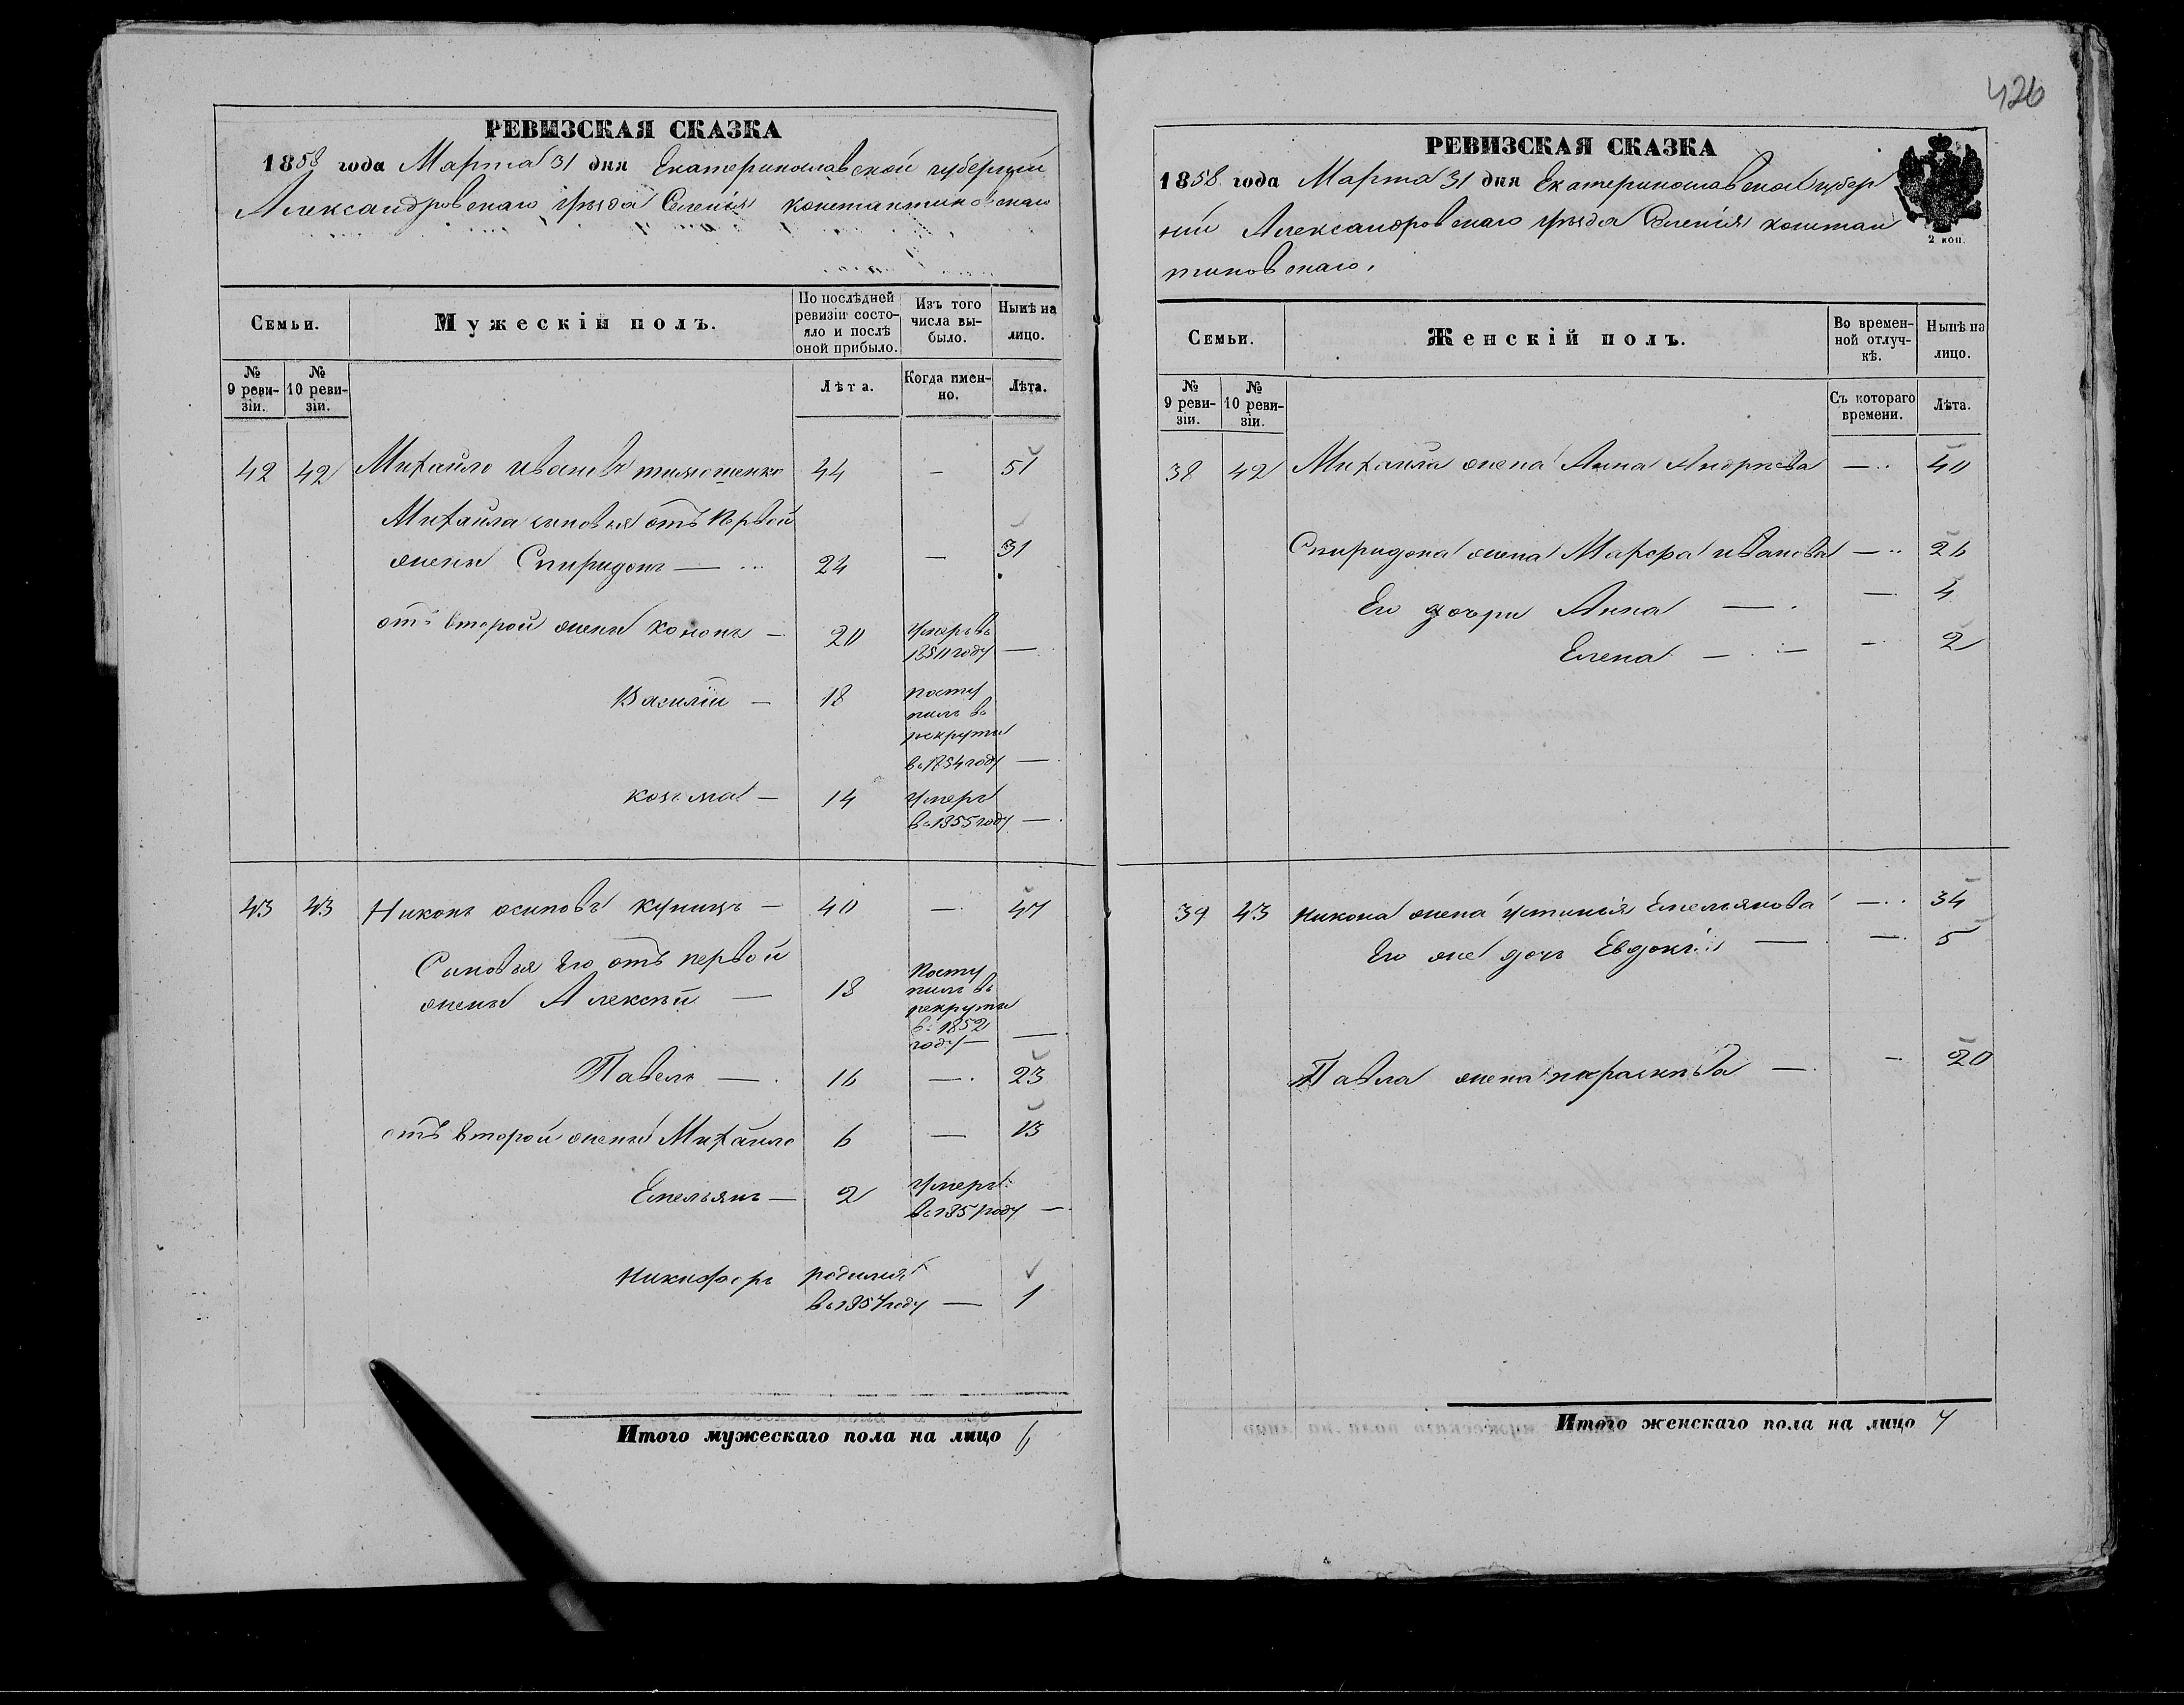 РЕВИЗСКАЯ СКАЗКА
1858 года Марта 31 дня Екатеринославской губернии
Александровскаго уѣзда Селенія константиновскаго
Семьи.
Мужескій полъ.
По послѣдней ревизіи состояло и послѣ оной прибыло.
Изъ того числа выбыло.
Нынѣ на лицо.
№ 9 ревизіи.
№ 10 ревизіи.
Лѣта.
Когда именно.
Лѣта.
42 42 Михайло ивановъ тимошенко 44 — 51
Михайла сыновья отъ первой
жены Спиридонъ — 24 — 31
отъ второй жены кононъ — 20 умеръ въ
1850 году —
Василій — 18 посту
пилъ въ
рекруты
въ 1854 году —
козьма — 14 умеръ
въ 1855 году —
43 43 Никонъ осиповъ купицъ — 40 — 47
Сыновья Его отъ первой
жены Алексѣй — 18 посту
пилъ въ
рекруты
въ 1852
году — —
Павелъ — 16 — 23
отъ второй жены Михайло 6 — 13
Емельянъ — 2 умеръ
въ 1851 году —
никифоръ родился
въ 1857 году — 1
Итого мужескаго пола на лицо 6
426
РЕВИЗСКАЯ СКАЗКА
1858 года Марта 31 дня Екатеринославской губер
ніи Александровскаго уѣзда Селенія констан
тиновскаго.
2 коп.
Семьи.
Женскій полъ.
Во временной отлучкѣ.
Нынѣ на лицо.
№ 9 ревизіи.
№ 10 ревизіи.
Съ котораго времени.
Лѣта.
38 42 Михайла жена Анна Андрѣева — 40
Спиридона жена Марфа иванова — 26
Его дочри Анна — — 4
Елена — — — 2
39 43 никона жена устинія Емельянова — 34
Его же дочь Евдокія — — 5
Павла жена — — 20
Итого женскаго пола на лицо 7